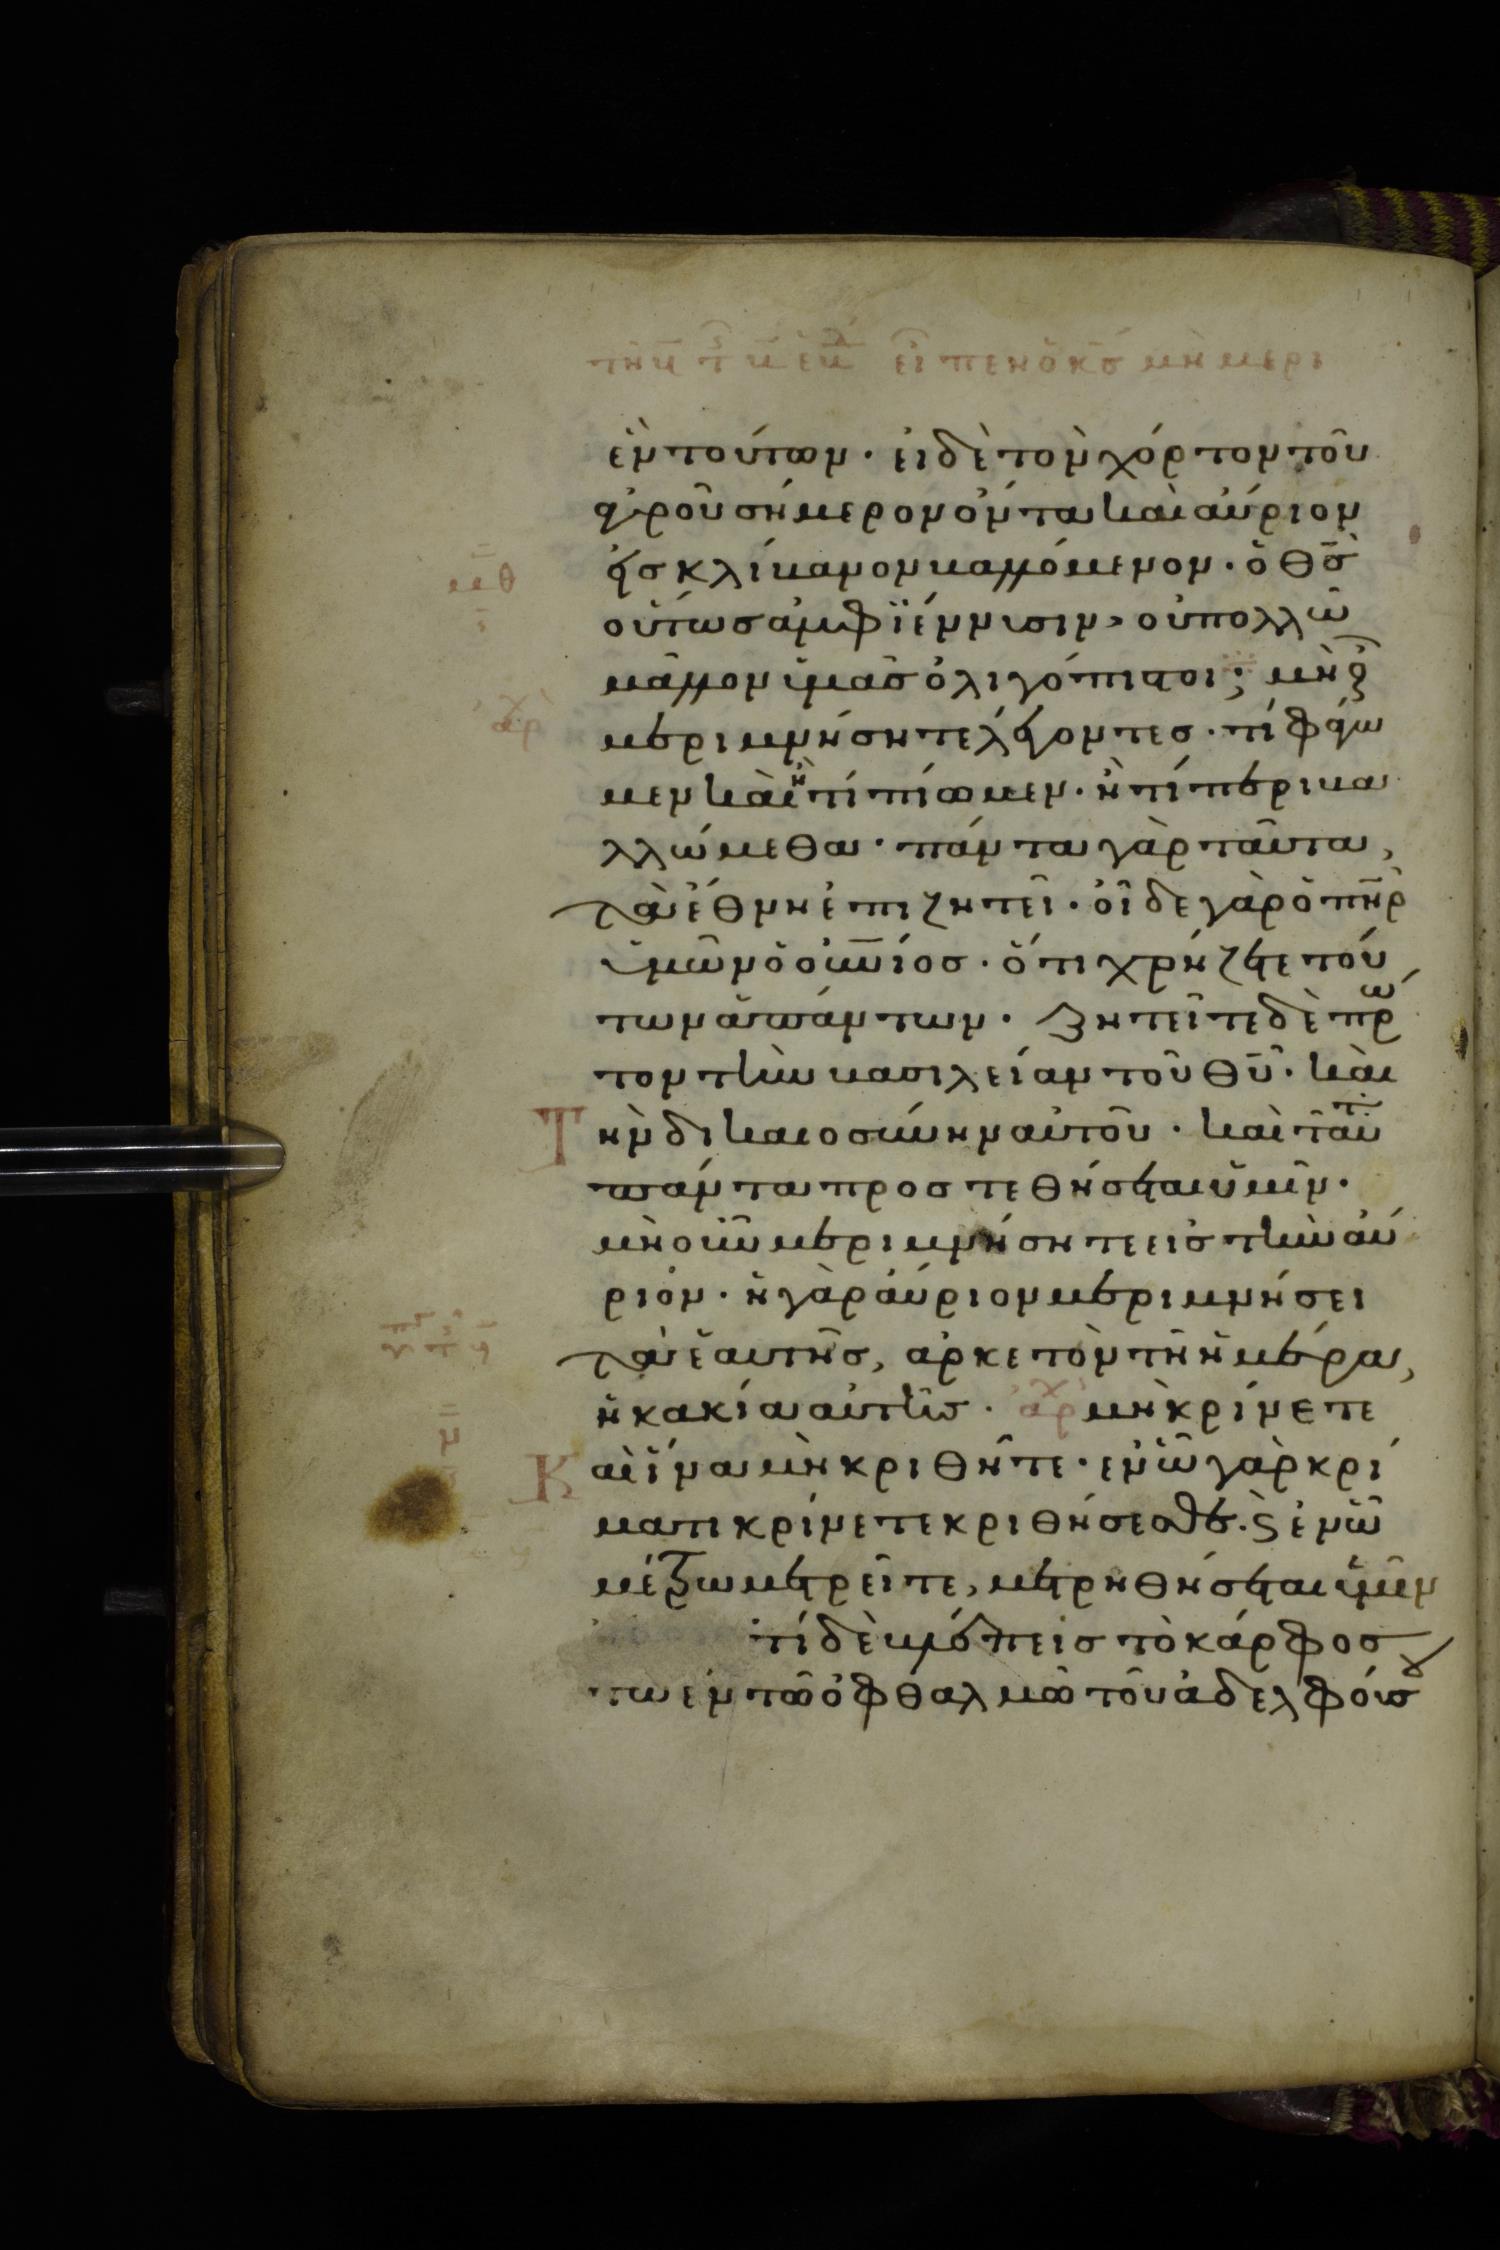 ἓν τούτων · εἰ δὲ τὸν χόρτον τοῦ
ἀγροῦ σήμερον ὄντα καὶ αὔριον
εἰς κλίβανον βαλλόμενον · ὁ θσ
οὕτωσ ἀμφϊέννυσιν, οὐ πολλῶ
μᾶλλον ὑμᾶσ ὀλιγόπιστοι; μὴ οὖ
μεριμνήσητε λέγοντεσ · τί φάγω
μεν καὶ ἢ τί πίωμεν · ἢ τί περιβα
λλώμεθα · πάντα γὰρ ταῦτα,
τὰ ἔθνη ἐπιζητεῖ · οἶδε γὰρ ὁ πηρ
ὑμῶν ὁ οὐνιοσ · ὅτι χρήζετε τού
των ἁπάντων · Ζητεῖτε δὲ πρῶ
τον τὴν βασιλείαν τοῦ θυ · καὶ
Τ ὴν δικαιοσύνην αὐτοῦ · καὶ ταῦτ
πάντα προστεθήσεται ὑμῖν ·
μὴ οὖν μεριμνήσητε εἰσ τὴν αὔ
ριον · ἡ γὰρ αὔριον μεριμνήσει
τὰ ἑαυτῆσ, ἀρκετὸν τῆ ἡμέρα,
ἡ κακία αὐτῆσ · ἀρχ μὴ κρίνετε
Κ αὶ ἵνα μὴ κριθῆτε · ἐν ὧ γὰρ κρί
ματι κρίνετε κριθήσεσθε · ϛ ἐν ὧ
μέτρω μετρεῖτε, μετρηθήσεται ὑμῖν
τί δὲ βλέπεισ τὸ κάρφοσ
τω ἐν τῶ ὀφθαλμῶ τοῦ ἀδελφού σου
μθ
ἀρχ